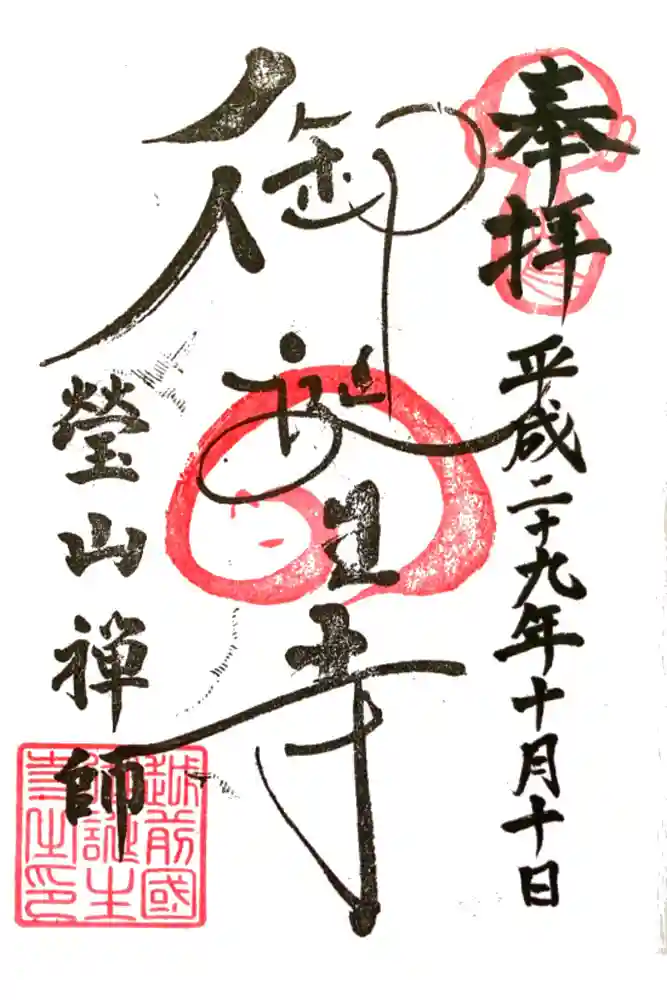 奉拝
平成二十九年十月十日
御誕生寺
瑩山禅師
越前國
御誕生
寺住印